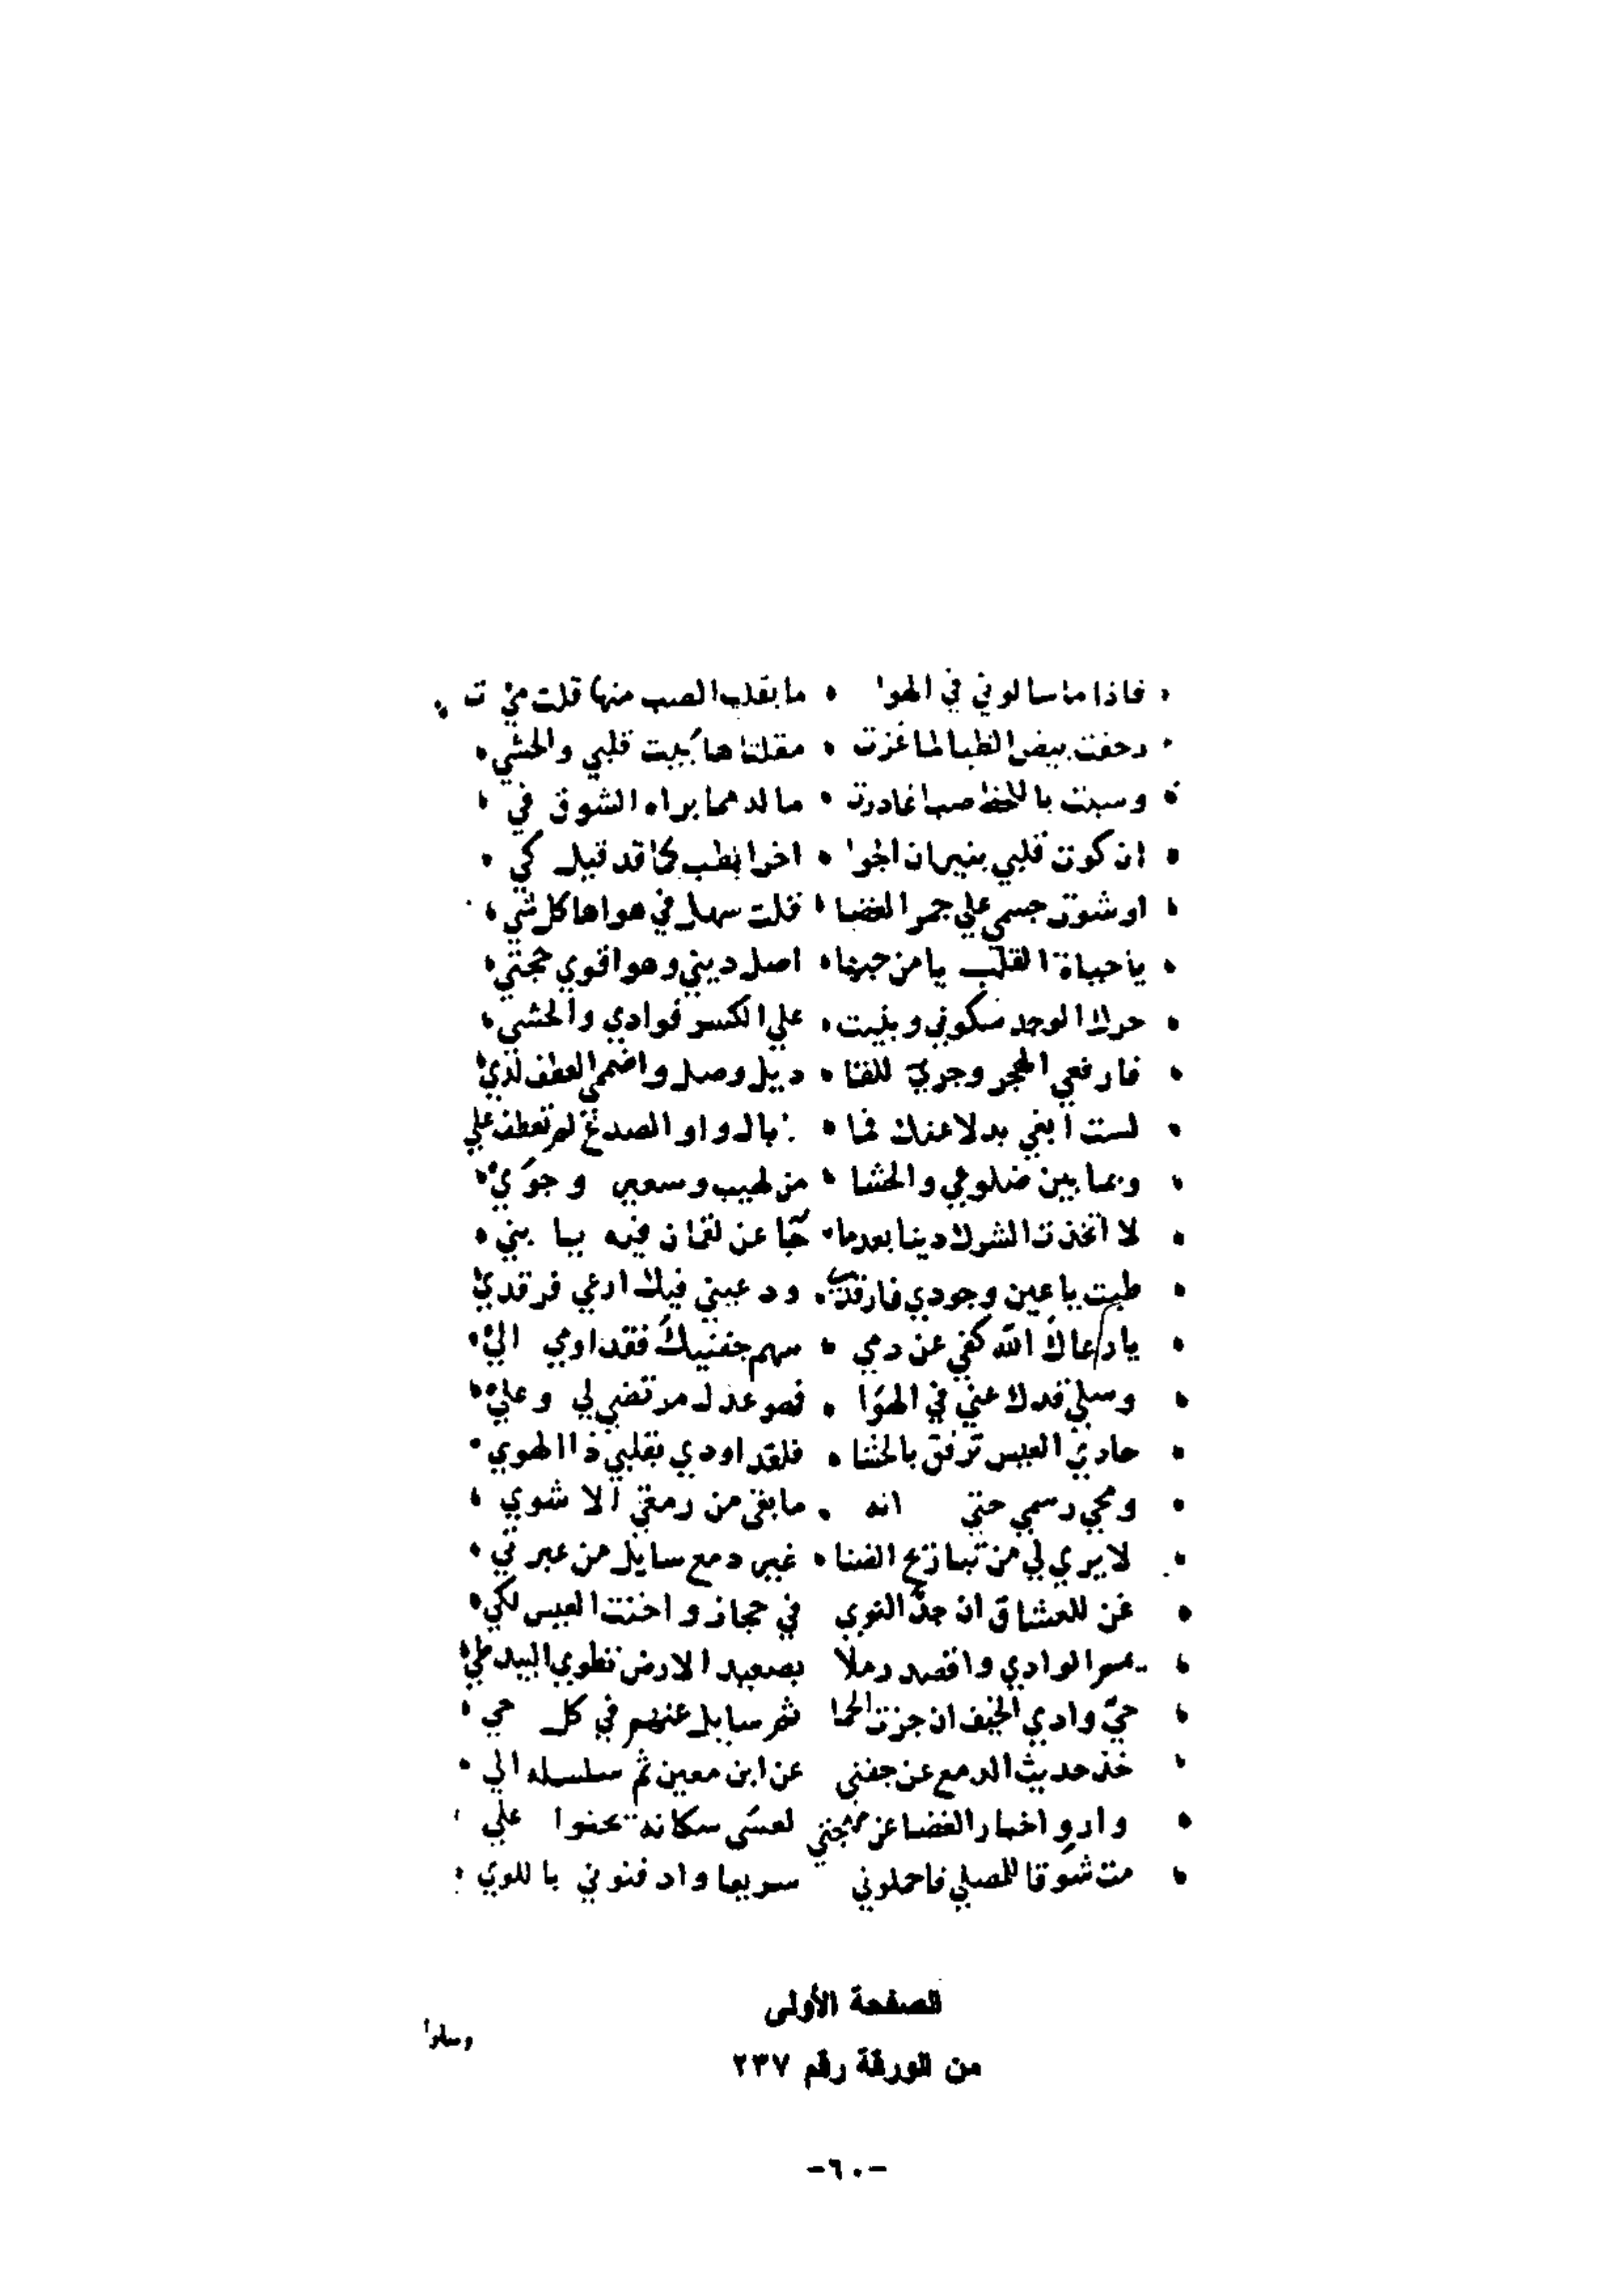 فاذا ما سالوني في الهوا ما بقلب الصب منها قلت مي
رحفت ببيض الظبا لما غزت مقلتاها كبيت قلبي والحشي
وسبت باللحظ صبا غادرت ما له مما براه الشوق في
ان كوت قلبي بنيران الجوا اخرا بطب كما قد قيل كي
او شوت جسمي علي جمر الغضا قلت سهل في هواها كل شي
يا حياة القلب يا من حبها اصل ديني وهو اقوي حجتي
حرك الوجد سكوني وبنيت علي الكسر فوادي والحشي
فارفعي الهجر وجري للفنا ذيل وصل واضممي العطف لدي
لست ابغي بدلا عنك فما بال واو الصدغ لم تعطف علي
وبما بين ضلوعي والحشا من لهيب وسعير وجوي
لا اتخذت الشرك دينا بعدما جا عن لقمان فيه يا بني
طبت يا عين وجودي فارقدي ودعيني فيك ارعي فرقدي
يا رعاك الله كفي عن دمي سهم جفنيك فقد اومي الي
وسلي قدك عني في الهوا فهو عدل مرتضي لي وعلي
حادي العيس ترفق بالحشا فلقد اودي بقلبي ذا الهوي
ومحي رسمي حتي انه ما بقي من رمقي الا شوي
لا يري لي من تباريح الضنا غير دمع سايل من عبرتي
غن للعشاق ان جد النوي في حجاز واخنت العيس لكي
يمم الوادي واقصد رملا بصعيد الارض تطوي البيد طي
حي وادي الخيف ان جزت الحما ثم سايل عنهم في كل حي
خذ حديث الدمع عن جفني عن ابن معين ثم سلسله الي
وارو اخبار الغضا عن مهجتي لعسي سكانه تحنوا علي
مت شوقا للمصلي فاحملوني سريعا وادفنوني باللوي
وسلوا
الصفحة الأولى
من الورقة رقم ٢٣٧
-٦٠-